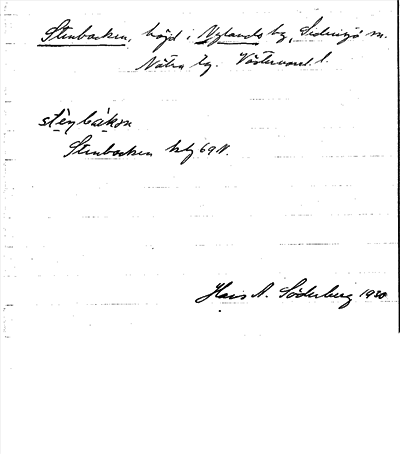 Stenbacken, höjd i Nylands by, Sidensjö sn.
Nätra tg. Västernorrl l.
stè̱nbàkɔn
Stenbacken kbl 69 N.
Hans A. Söderberg 1930